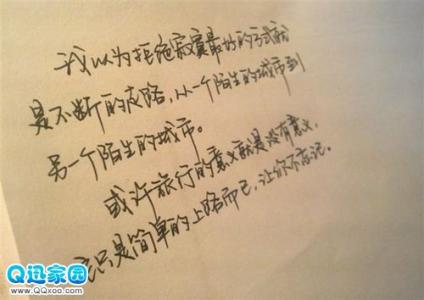 我以为拒绝寂寞最好的方式就
是不断的皮路，从一个陌生的城市到
另一个陌生的城市。
或许旅行的意义就是没有意义，
只是简单的上路而已，让你不忘记。
QQ迅家园
www.QQxoo.com